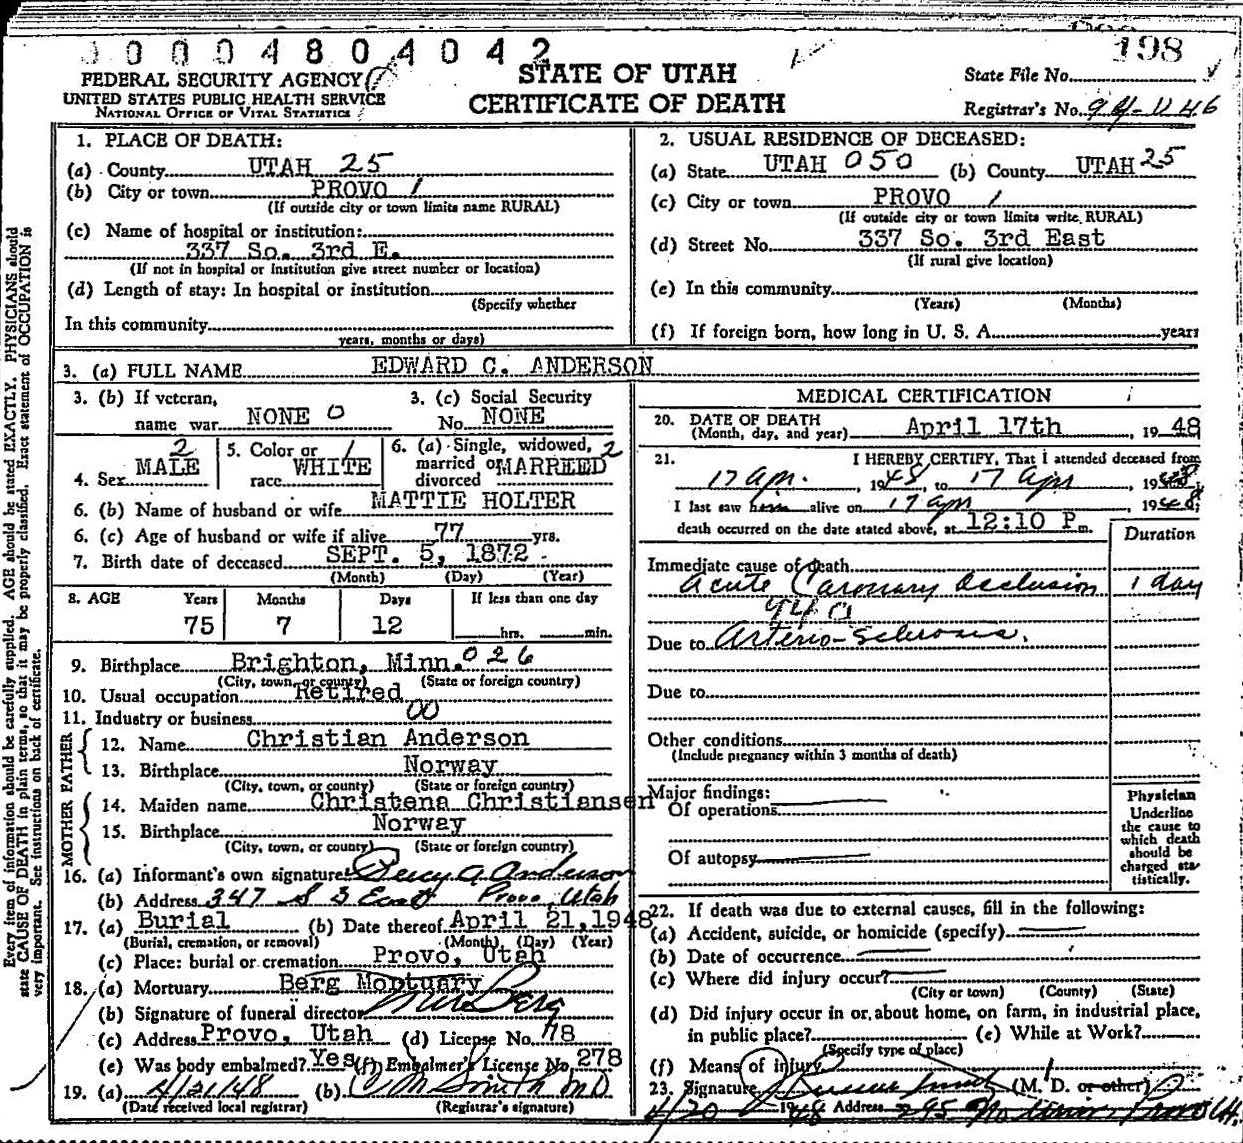 0 0 0 0 4 8 0 4 0 4 2
198
FEDERAL SECURITY AGENCY
UNITED STATES PUBLIC HEALTH SERVICE
NATIONAL OFFICE OF VITAL STATISTICS
STATE OF UTAH
CERTIFICATE OF DEATH
State File No.
Registrar's No.
Every item of information should be carefully supplied. AGE should be stated EXACTLY. PHYSICIANS should
state CAUSE OF DEATH in plain terms, so that it may be properly classified. Exact statement of OCCUPATION is
very important. See instructions on back of certificate.
1. PLACE OF DEATH:
(a) County UTAH 25
(b) City or town PROVO 1
(If outside city or town limits name RURAL)
(c) Name of hospital or institution:
337 So. 3rd E.
(If not in hospital or institution give street number or location)
(d) Length of stay: In hospital or institution
(Specify whether
In this community
years, months or days)
2. USUAL RESIDENCE OF DECEASED:
(a) State UTAH 050 (b) County UTAH 25
(c) City or town PROVO 1
(If outside city or town limits write RURAL)
(d) Street No. 337 So. 3rd East
(If rural give location)
(e) In this community
(Years) (Months)
(f) If foreign born, how long in U. S. A. years
3. (a) FULL NAME EDWARD C. ANDERSON
3. (b) If veteran,
name war NONE 0
3. (c) Social Security
No. NONE
4. Sex MALE 2
5. Color or
race WHITE 1
6. (a) Single, widowed, 2
married or MARREED
divorced
6. (b) Name of husband or wife MATTIE HOLTER
6. (c) Age of husband or wife if alive 77 yrs.
7. Birth date of deceased SEPT. 5, 1872
(Month) (Day) (Year)
8. AGE Years Months Days If less than one day
75 7 12 hrs. min.
9. Birthplace Brighton, Minn. 026
(City, town, or county) (State or foreign country)
10. Usual occupation Retired
11. Industry or business 00
FATHER
12. Name Christian Anderson
13. Birthplace Norway
(City, town, or county) (State or foreign country)
MOTHER
14. Maiden name Christena Christiansen
15. Birthplace Norway
(City, town, or county) (State or foreign country)
16. (a) Informant's own signature Percy A. Anderson
(b) Address 347 S 3 East Provo, Utah
17. (a) Burial (b) Date thereof April 21, 1948
(Burial, cremation, or removal) (Month) (Day) (Year)
(c) Place: burial or cremation Provo, Utah
18. (a) Mortuary Berg Mortuary
(b) Signature of funeral director Berg
(c) Address Provo, Utah (d) License No. 78
(e) Was body embalmed? Yes (f) Embalmer's License No. 278
19. (a) 4/21/48 (b) C M Smith MD
(Date received local registrar) (Registrar's signature)
MEDICAL CERTIFICATION
20. DATE OF DEATH
(Month, day, and year) April 17th, 1948
21. I HEREBY CERTIFY, That I attended deceased from
17 Apr., 1948, to 17 Apr, 1948;
I last saw him alive on 17 Apr, 1948;
death occurred on the date stated above, at 12:10 P m.
Duration
Immediate cause of death
Acute Coronary Occlusion 1 day
94a
Due to Arterio-Sclerosis.
Due to
Other conditions
(Include pregnancy within 3 months of death)
Major findings:
Of operations
Of autopsy
Physician
Underline
the cause to
which death
should be
charged sta-
tistically.
22. If death was due to external causes, fill in the following:
(a) Accident, suicide, or homicide (specify)
(b) Date of occurrence
(c) Where did injury occur?
(City or town) (County) (State)
(d) Did injury occur in or about home, on farm, in industrial place,
in public place? (e) While at Work?
(Specify type of place)
(f) Means of injury
23. Signature (M. D. or other)
4/20 1948 Address 295